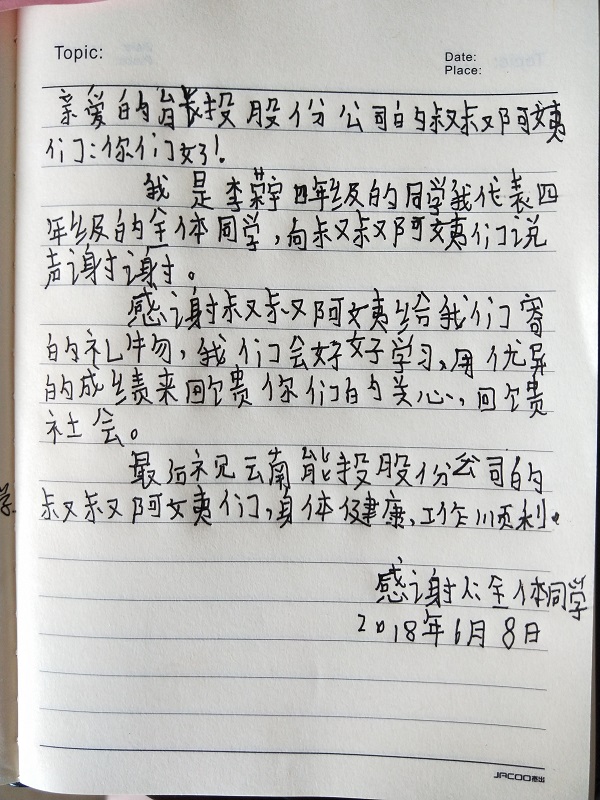 Topic:
Date:
Place:
亲爱的能投股份公司的叔叔阿姨
们:你们好!
我是李荣宇四年级的同学我代表四
年级的全体同学,向叔叔阿姨们说
声谢谢。
感谢叔叔阿姨给我们寄
的礼物,我们会好好学习,用优异
的成绩来回馈你们的关心,回馈
社会。
最后祝云南能投股份公司的
叔叔阿姨们,身体健康,工作顺利。
感谢人全体同学
2018年6月8日
JACOO杰出